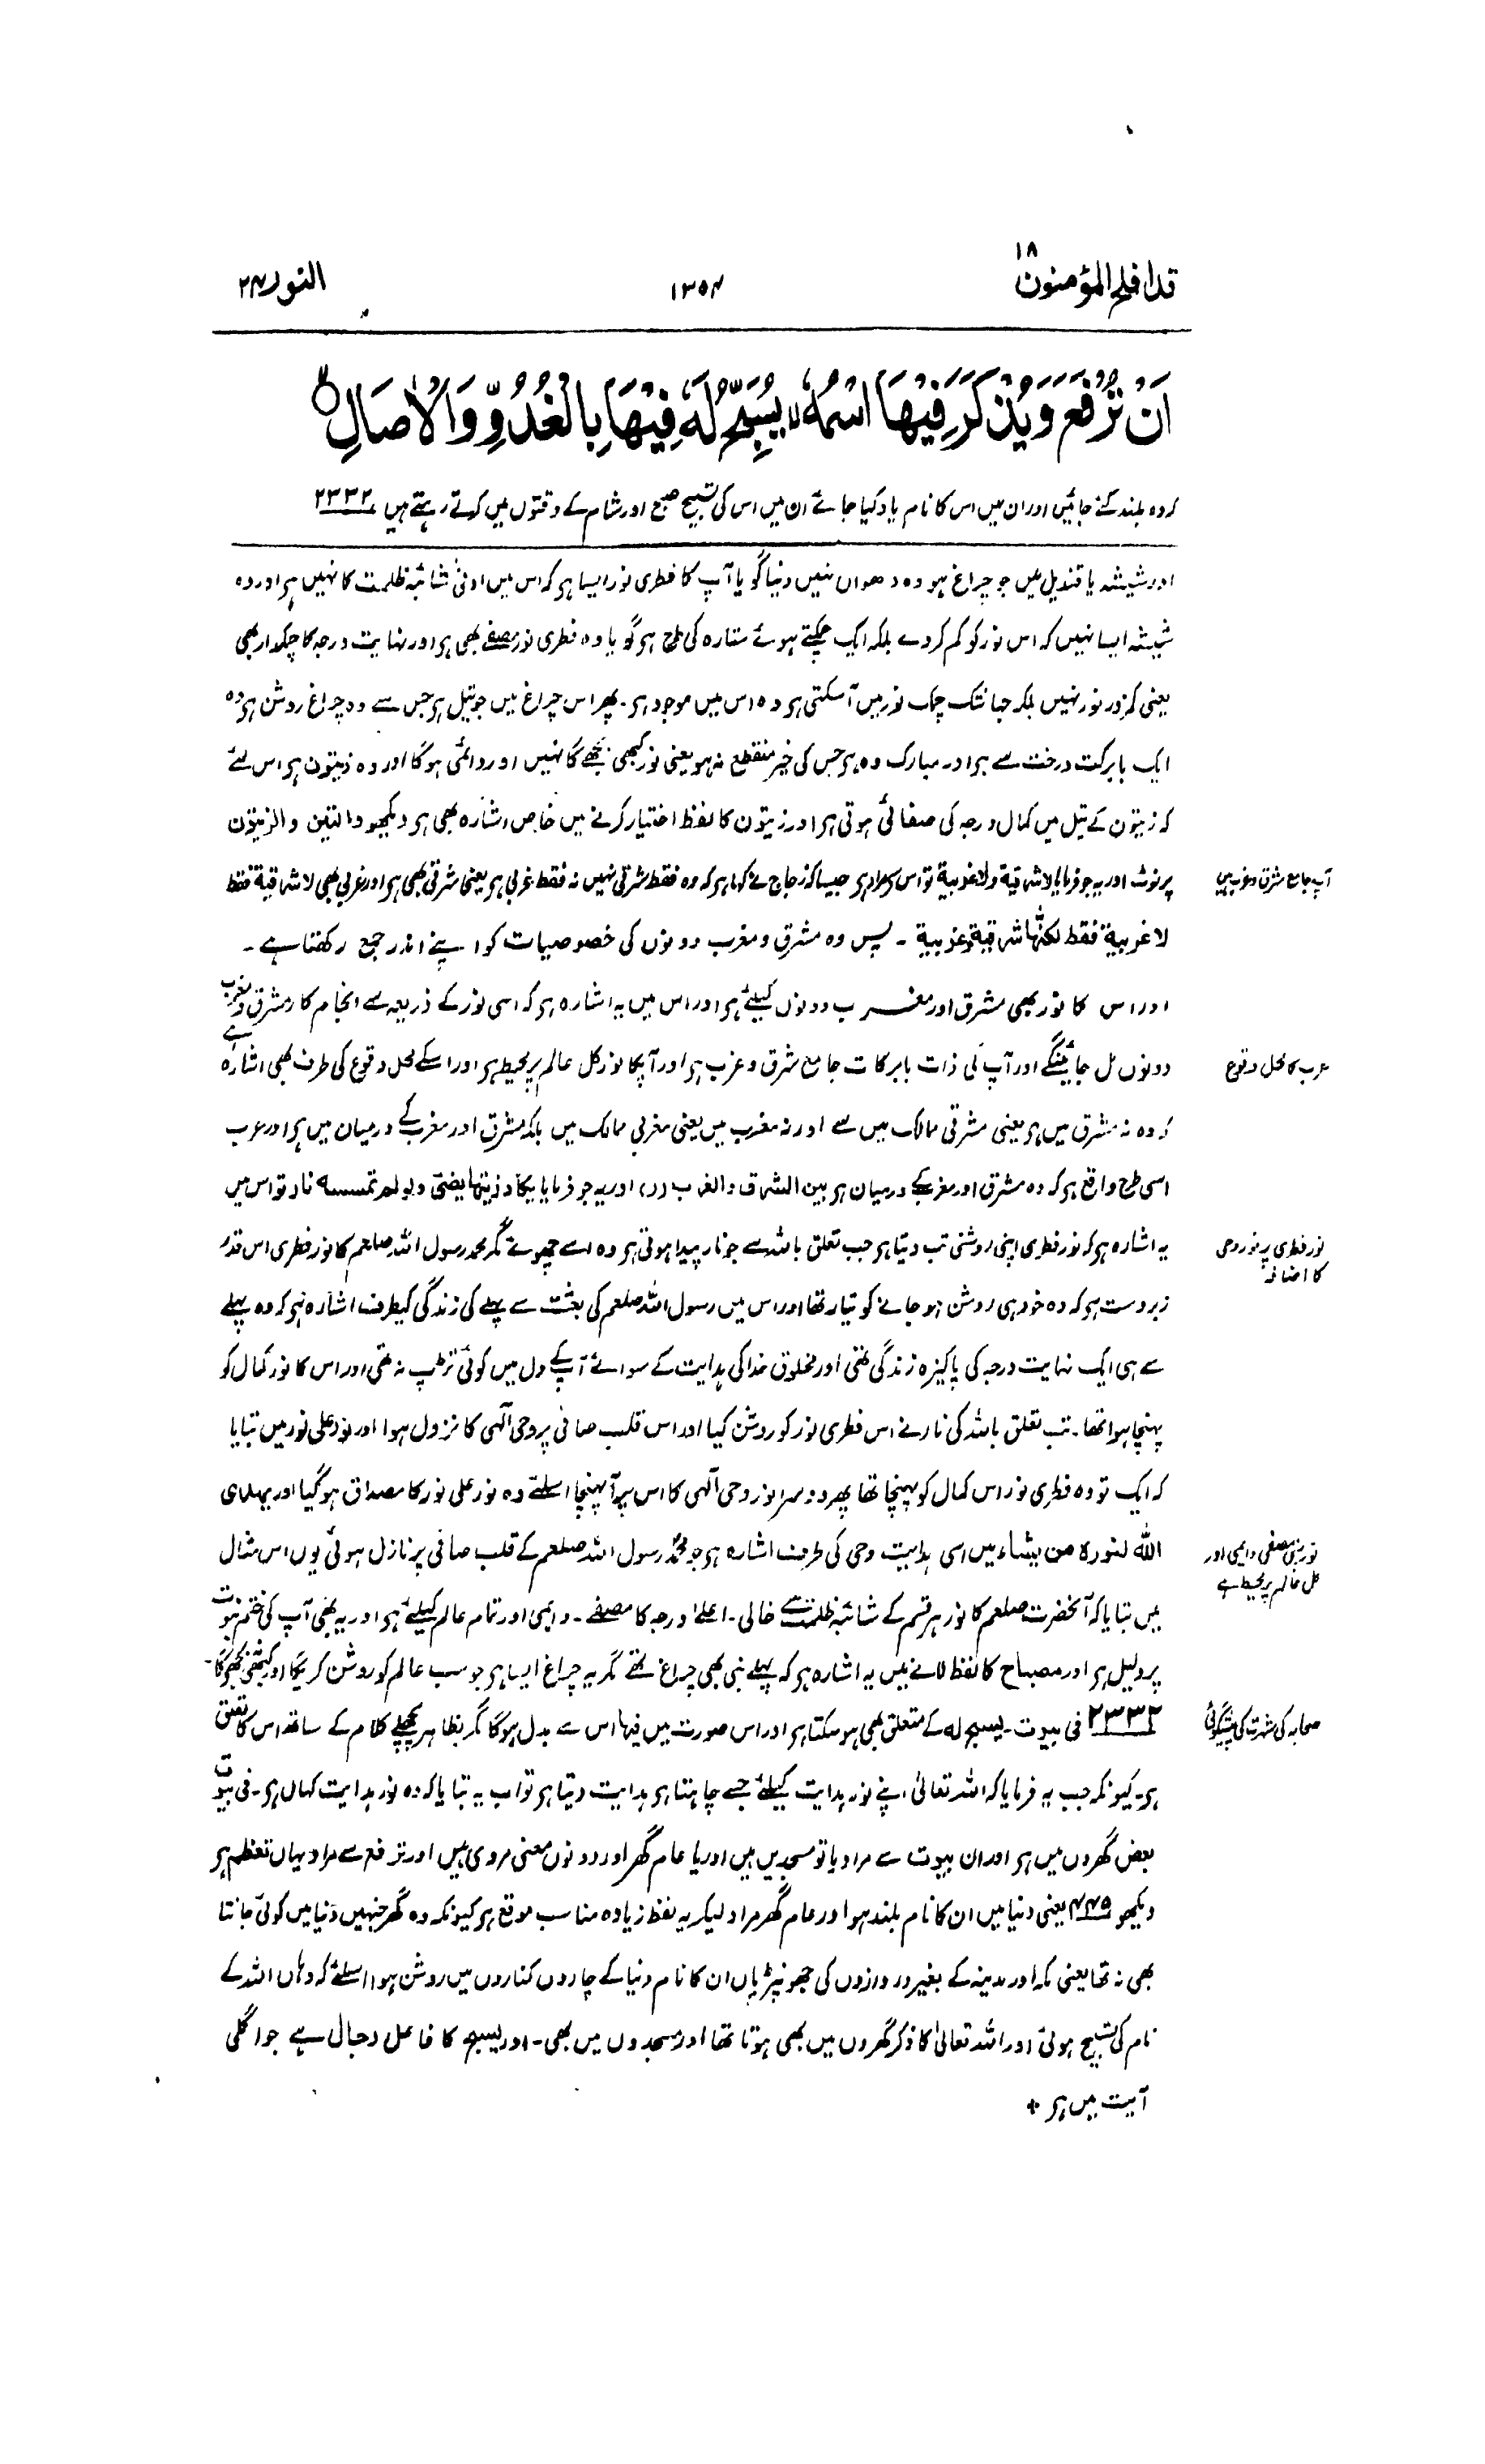 قد افلح المؤمنون ۱۸
۱۳۵۴
النور ۲۴
اَنْ تُرْفَعَ وَيُذْكَرَ فِيْهَا اسْمُهٗ ۙ يُسَبِّحُ لَهٗ فِيْهَا بِالْغُدُوِّ وَالْاٰصَالِ
کہ وہ بلند کئے جائیں اور ان میں اس کا نام یاد کیا جائے ان میں اس کی تسبیح صبح اور شام کے وقتوں میں کرتے رہتے ہیں ۲۳۳۲
اور شیشہ یا قندیل میں جو چراغ ہو وہ دھواں نہیں دیتا گویا آپ کا فطری نور ایسا ہو کہ اس میں ادنیٰ شائبہ ظلمت کا نہیں ہو اور وہ
شیشہ ایسا نہیں کہ اس نور کو کم کر دے بلکہ ایک چمکتے ہوئے ستارہ کی طرح ہو گویا وہ فطری نور مصفے بھی ہو اور نہایت درجہ کا چمکدار بھی
یعنی کمزور نور نہیں بلکہ جہانتک چمک نور میں آسکتی ہو وہ اس میں موجود ہو۔ پھر اس چراغ میں جو تیل ہو جس سے وہ چراغ روشن ہو وہ
ایک بابرکت درخت سے ہو اور مبارک وہ ہو جس کی خیر منقطع نہ ہو یعنی نور کبھی بجھے گا نہیں اور دائمی ہوگا اور وہ زیتون ہو اس لئے
کہ زیتون کے تیل میں کمال درجہ کی صفائی ہوتی ہو اور زیتون کا لفظ اختیار کرنے میں خاص اشارہ بھی ہو دیکھو والتین والزیتون
پر نوٹ اور یہ جو فرمایا لا شرقیة ولا غربیة تو اس سے مراد ہو جیسا کہ زجاج نے کہا ہو کہ وہ فقط شرقی نہیں نہ فقط غربی ہو یعنی شرقی بھی ہو اور غربی بھی لا شرقیة فقط
آپ جامع مشرق و مغرب ہیں
لا غربیة فقط لکنها شرقیة وغربیة ۔ پس وہ مشرق و مغرب دونوں کی خصوصیات کو اپنے اندر جمع رکھتا ہے ۔
اور اس کا نور بھی مشرق اور مغرب دونوں کیلئے ہو اور اس میں یہ اشارہ ہو کہ اسی نور کے ذریعہ سے انجام کار مشرق و مغرب
دونوں مل جائینگے اور آپ کی ذات بابرکات جامع شرق و غرب ہو اور آپکا نور کل عالم پر محیط ہو اور اسکے محل وقوع کی طرف بھی اشارہ ہے
عرب کا محل وقوع
کہ وہ نہ مشرق میں ہو یعنی مشرقی ممالک میں سے اور نہ مغرب میں یعنی مغربی ممالک میں بلکہ مشرق اور مغرب کے درمیان میں ہو اور عرب
اسی طرح واقع ہو کہ وہ مشرق اور مغرب کے درمیان ہو بین الشرق والغرب (ر) اور یہ جو فرمایا یکاد زیتها یضئ ولو لم تمسسه نار تو اس میں
یہ اشارہ ہو کہ نور فطری اپنی روشنی تب دیتا ہو جب تعلق باللہ سے جو نار پیدا ہوتی ہو وہ اسے چھوئے مگر محمد رسول اللہ صلعم کا نور فطری اس قدر
نور فطری پر نور وحی
کا اضافہ
زبردست ہو کہ وہ خود ہی روشن ہو جانے کو تیار تھا اور اس میں رسول اللہ صلعم کی بعثت سے پہلے کی زندگی کیطرف اشارہ ہو کہ وہ پہلے
سے ہی ایک نہایت درجہ کی پاکیزہ زندگی تھی اور مخلوق خدا کی ہدایت کے سوائے آپکے دل میں کوئی تڑپ نہ تھی اور اس کا نور کمال کو
پہنچا ہوا تھا۔ تب تعلق باللہ کی نار نے اس فطری نور کو روشن کیا اور اس قلب صافی پر وحی الٰہی کا نزول ہوا اور نور علی نور میں بتایا
کہ ایک تو وہ فطری نور اس کمال کو پہنچا تھا پھر دوسرا نور وحی الٰہی کا اس پر آ پہنچا اسلئے وہ نور علی نور کا مصداق ہوگیا اور یهدی
الله لنوره من یشاء میں اسی ہدایت وحی کی طرف اشارہ ہو جو محمد رسول اللہ صلعم کے قلب صافی پر نازل ہوئی یوں اس مثال
نور نبی مصفی دائمی اور
کل عالم پر محیط ہے
میں بتایا کہ آنحضرت صلعم کا نور ہر قسم کے شائبہ ظلمت سے خالی ۔ اعلیٰ درجہ کا مصفے ۔ دائمی اور تمام عالم کیلئے ہو اور یہ بھی آپ کی ختم نبوت
پر دلیل ہو اور مصباح کا لفظ لانے میں یہ اشارہ ہو کہ پہلے نبی بھی چراغ تھے مگر یہ چراغ ایسا ہو جو سب عالم کو روشن کریگا اور کبھی نہ بجھے گا۔
۲۳۳۲ فی بیوت ۔ یسبح له کے متعلق بھی ہوسکتا ہو اور اس صورت میں فیها اس سے بدل ہوگا مگر بظاہر پچھلے کلام کے ساتھ اس کا تعلق
صحابہ کی شہرت کی پیشگوئی
ہو۔ کیونکہ جب یہ فرمایا کہ اللہ تعالیٰ اپنے نور ہدایت کیلئے جسے چاہتا ہو ہدایت دیتا ہو تو اب یہ بتایا کہ وہ نور ہدایت کہاں ہو۔ فی بیوت
بعض گھروں میں ہو اور ان بیوت سے مراد یا تو مسجدیں ہیں اور یا عام گھر اور دونوں معنی مروی ہیں اور ترفع سے مراد یہاں تعظیم ہو
دیکھو ۴۴۵ یعنی دنیا میں ان کا نام بلند ہو اور عام گھر مراد لیکر یہ لفظ زیادہ مناسب موقع ہو کیونکہ وہ گھر جنہیں دنیا میں کوئی جانتا
بھی نہ تھا یعنی مکہ اور مدینہ کے بغیر دروازوں کی جھونپڑیاں ان کا نام دنیا کے چاروں کناروں میں روشن ہوا اسلئے کہ وہاں اللہ کے
نام کی تسبیح ہوئی اور اللہ تعالیٰ کا ذکر گھروں میں بھی ہوتا تھا اور مسجدوں میں بھی ۔ اور یسبح کا فاعل رجال ہے جو اگلی
آیت میں ہو +